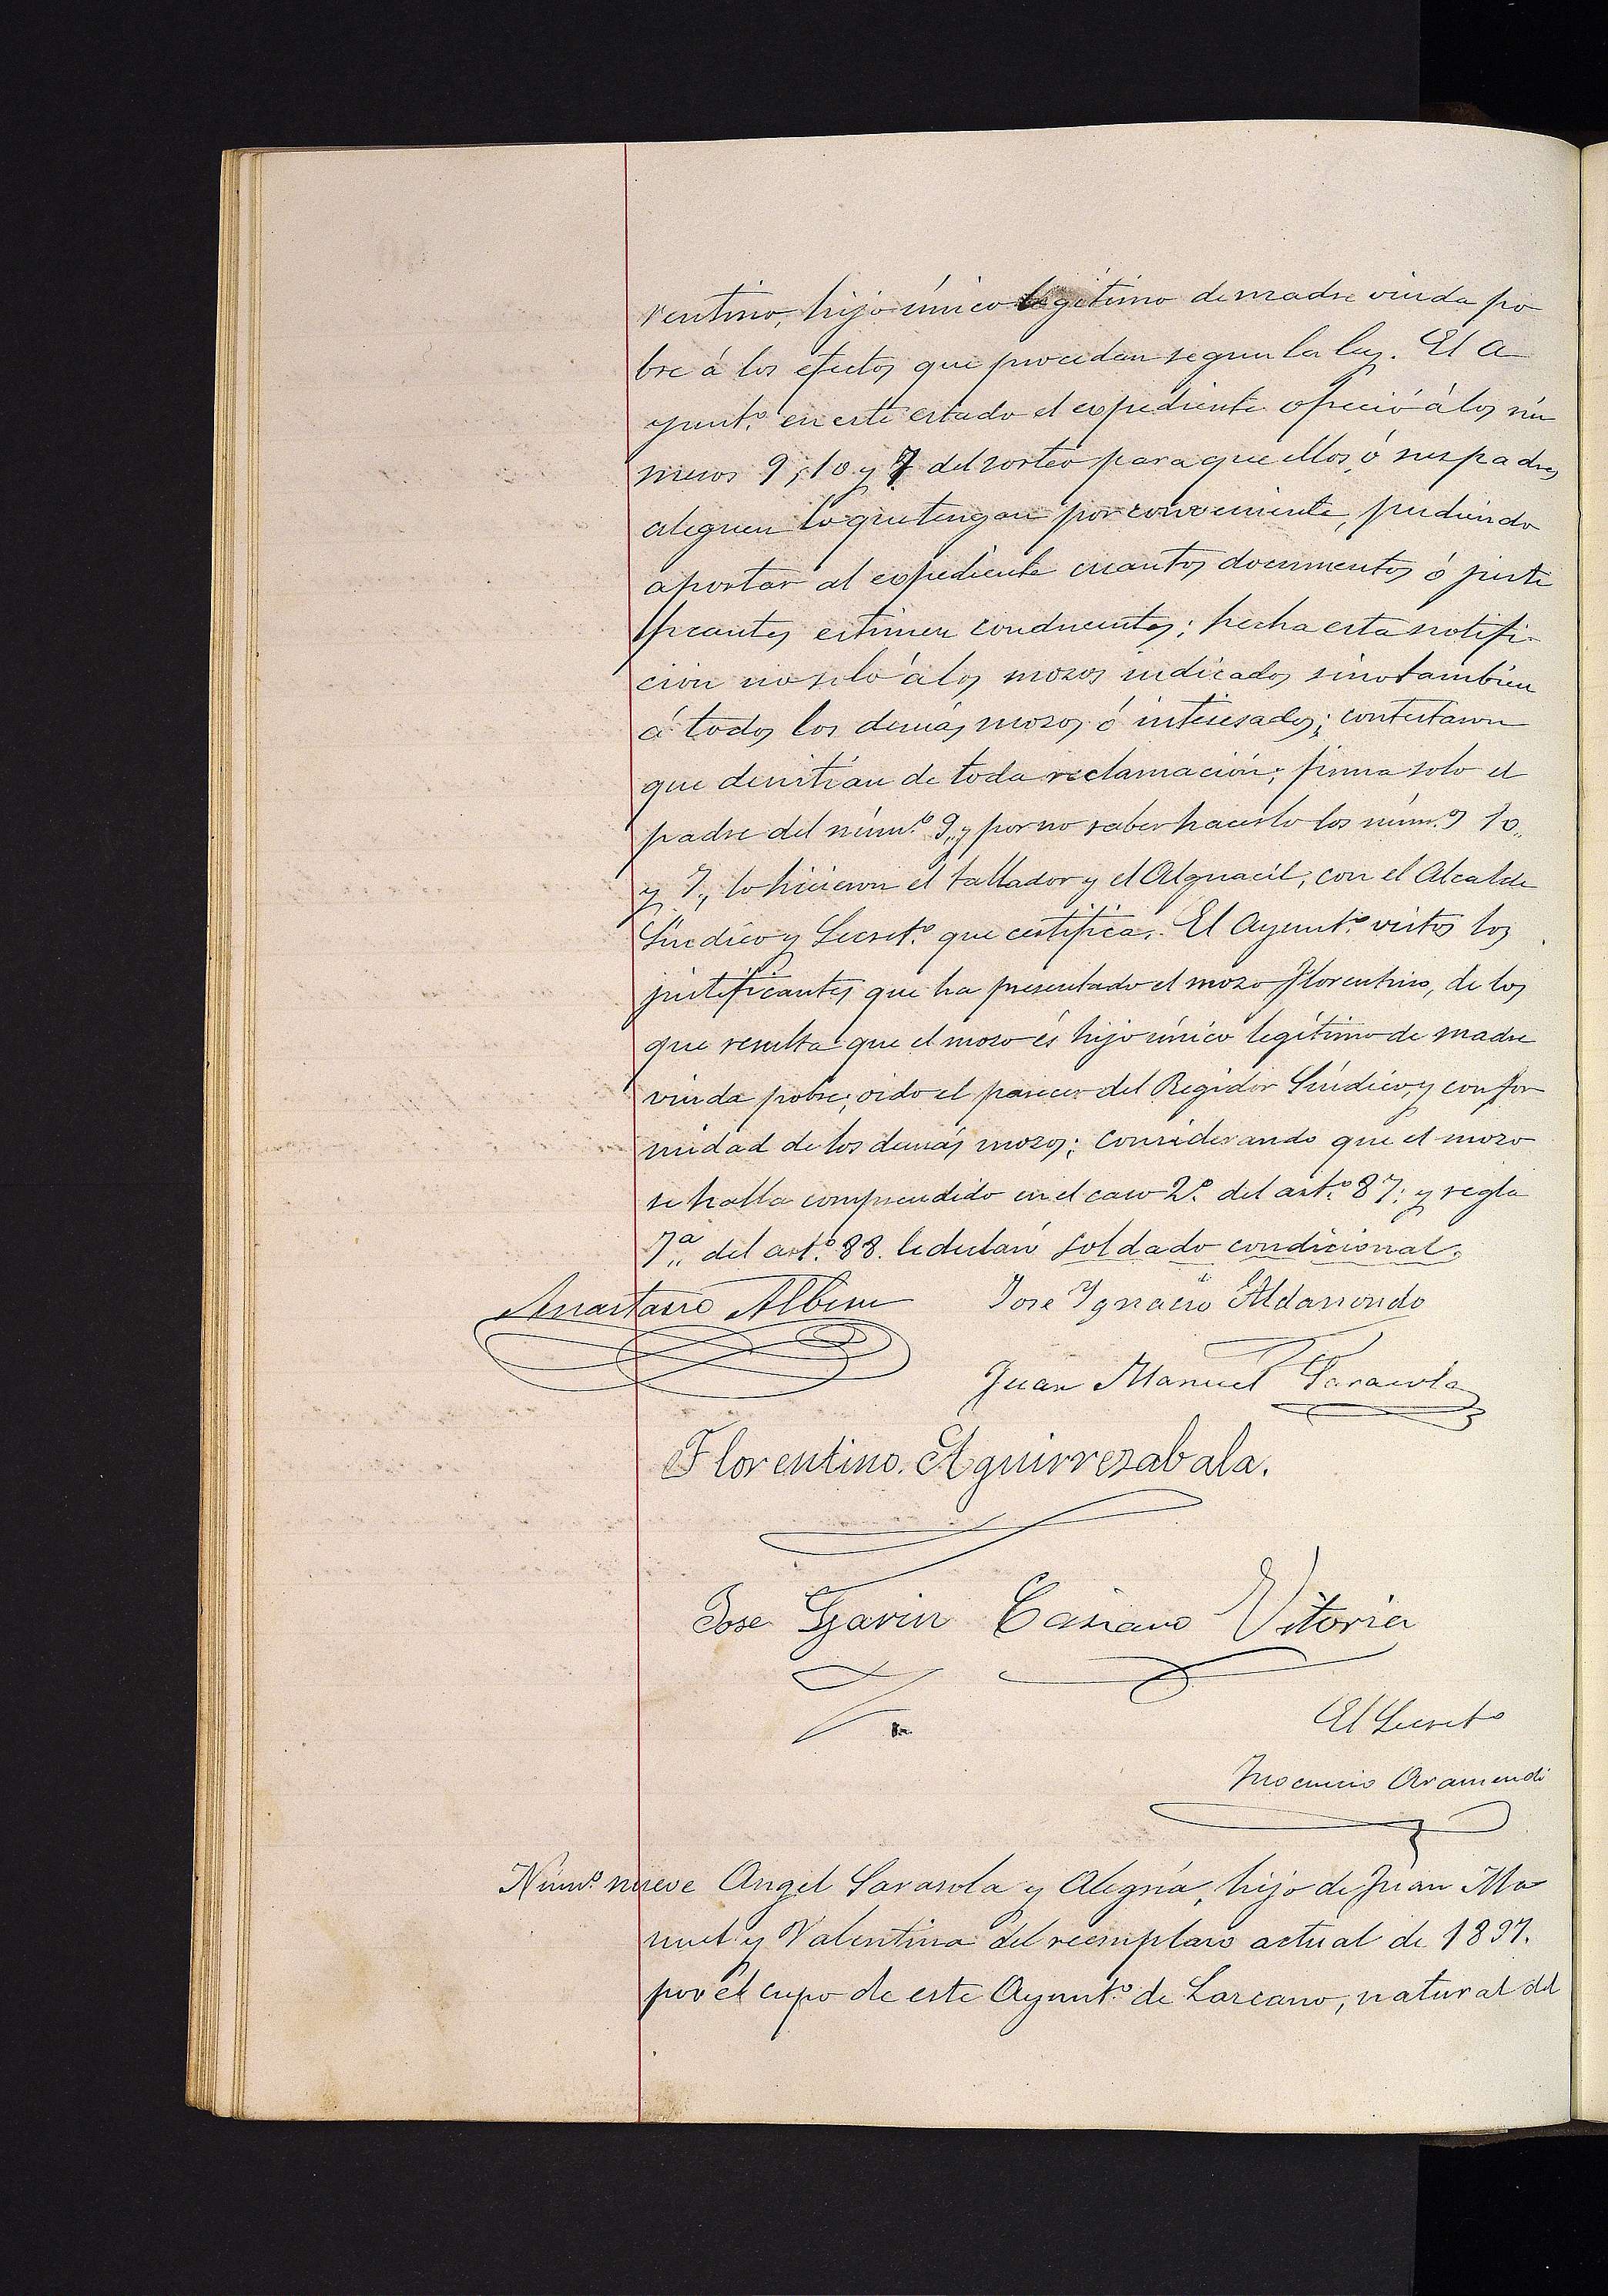 rentino, hijo único legítimo de madre viuda po
bre á los efectos que procedan segun la ley. El A
yuntº. en este estado el expediente ofreció á los nú
meros 9, 10 y 7 del sorteo para que ellos, ó sus padres
aleguen lo que tengan por conveniente, pudiendo
aportar al expediente cuantos documentos ó justi
ficantes estimen conducentes; hecha esta notifi-
ción no solo á los mozos indicados sino tambien
á todos los demás mozos ó interesados; contestaron
que desistian de toda reclamación; firma solo el
padre del númº. 9,, y por no saber hacerlo los núm.s 10,,
y 7,, lo hicieron el tallador y el Alguacil, con el Alcalde
Síndico y Secretº. que certifica. El Ayuntº. vistos los
justificantes que ha presentado el mozo Florentino, de los
que resulta que el mozo és hijo único legítimo de madre
viuda pobre; oido el parecer del Regidor Síndico, y confor
midad de los demás mozos; considerando que el mozo
se halla comprendido en el caso 2º. del artº. 87: y regla
7ª,, del artº. 88. le declaró soldado condicional.
Anastasio Albisu José Ignacio Aldasoro
Juan Manuel Sarasola
Florentino. Aguirrezabala.
Jose Garin Casiano Vitoria
El Secretº
Inocencio Aramendi
Númº. nueve Angel Sarasola y Alegría, hijo de Juan Ma
nuel y Valentina del reemplazo actual de 1897.
por el cupo de este Ayuntº. de Lazcano, natural del